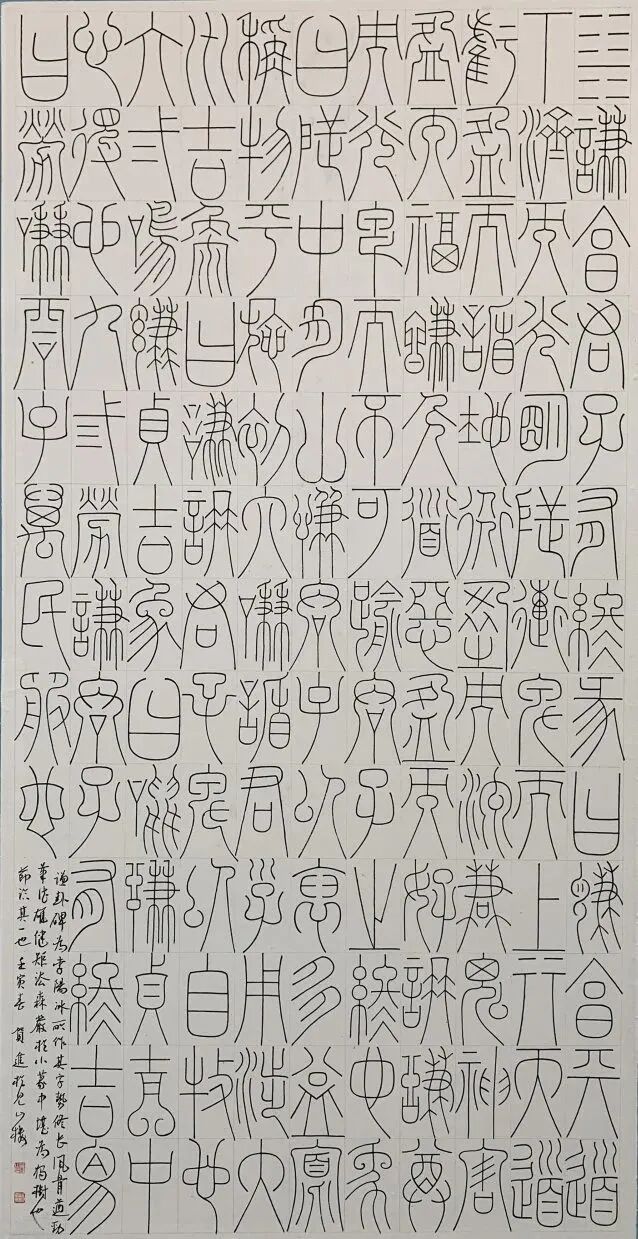 ䷎謙亨君子有終彖曰謙亨天道
下濟而光明地道卑而上行天道
虧盈而謙地變盈而流謙鬼神害
盈而福謙人道惡盈而好謙謙尊
而光卑而不可踰君子之終也象
曰地中有山謙君子以裒多益寡
稱物平施初六謙謙君子用涉大
川吉象曰謙謙君子卑以自牧也
六二鳴謙貞吉象曰鳴謙貞吉中
心得也九三勞謙君子有終吉象
曰勞謙君子萬民服也
谦卦碑为李陽冰所作其字勢修长風骨遒勁
筆法雄健矩法森嚴於小篆中堪为獨樹也
節臨其一也壬寅春